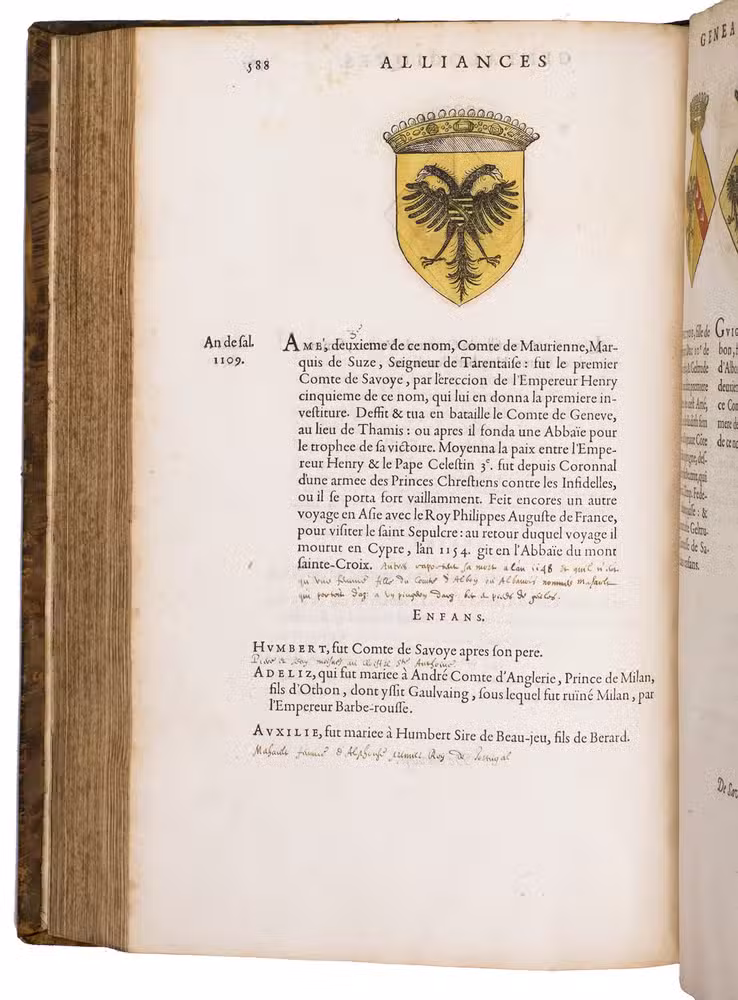 588 ALLIANCES
An de sal.
1109.
AME', deuxieme de ce nom, Comte de Maurienne, Mar-
quis de Suze, Seigneur de Tarentaise : fut le premier
Comte de Savoye, par l'ereccion de l'Empereur Henry
cinquieme de ce nom, qui lui en donna la premiere in-
vestiture. Desfit & tua en bataille le Comte de Geneve,
au lieu de Thamis : ou apres il fonda une Abbaïe pour
le trophee de sa victoire. Moyenna la paix entre l'Empe-
reur Henry & le Pape Celestin 3e. fut depuis Coronnal
d'une armee des Princes Chrestiens contre les Infidelles,
ou il se porta fort vaillamment. Feit encores un autre
voyage en Asie avec le Roy Philippes Auguste de France,
pour visiter le saint Sepulcre : au retour duquel voyage il
mourut en Cypre, l'an 1154. git en l'Abbaïe du mont
sainte-Croix. Autres raportent sa mort a l'an 1148 et qu'il n'eut
qu'une femme fille du Comte d'Albon
qui portoit d'or a
ENFANS.
HVMBERT, fut Comte de Savoye apres son pere.
ADELIZ, qui fut mariee à André Comte d'Anglerie, Prince de Milan,
fils d'Othon, dont yssit Gaulvaing, sous lequel fut ruïné Milan, par
l'Empereur Barbe-rousse.
AVXILIE, fut mariee à Humbert Sire de Beau-jeu, fils de Berard.
Mahault femme d'Alphonse premier Roy de Portugal
GENEA
fille de
GVIG
bon, f
d'Albo
deuxie
ce Con
mere de
de ce n